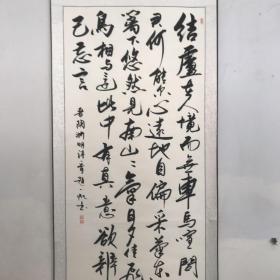 結廬在人境而無車馬喧問
君何能爾心遠地自偏采菊東
籬下悠然見南山山氣日夕佳飛
鳥相與還此中有真意欲辨
已忘言 晉陶淵明詩